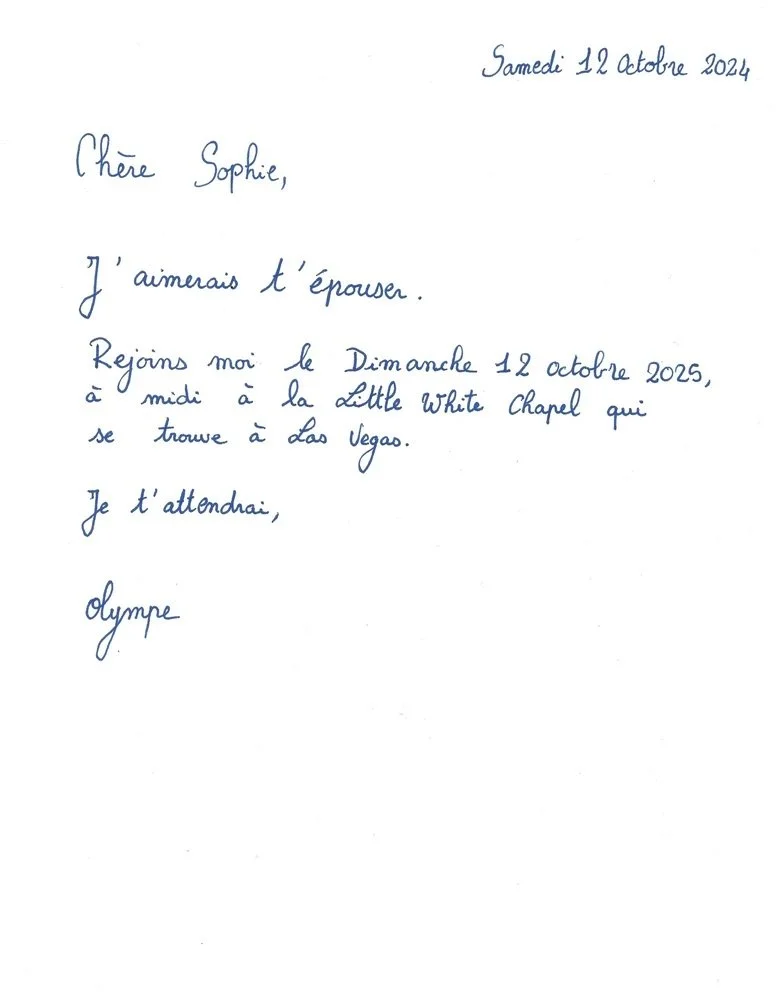 Samedi 12 Octobre 2024
Chère Sophie,
J'aimerais t'épouser.
Rejoins moi le Dimanche 12 octobre 2025,
à midi à la Little White Chapel qui
se trouve à Las Vegas.
Je t'attendrai,
Olympe